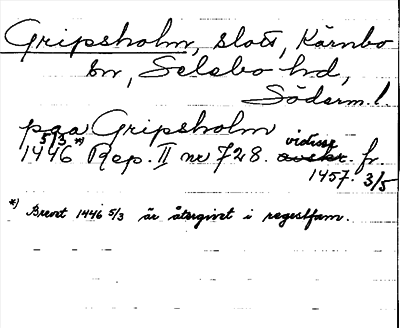 Gripsholm, slott, Kärnbo
sn, Selebo hd,
Söderm. l.
paa Gripsholm
1446 5/3 *) Rep. II nr 728. avskr. vidisse fr.
1457. 3/5
*) Brevet 1446 5/3 är återgivet i regestfam.